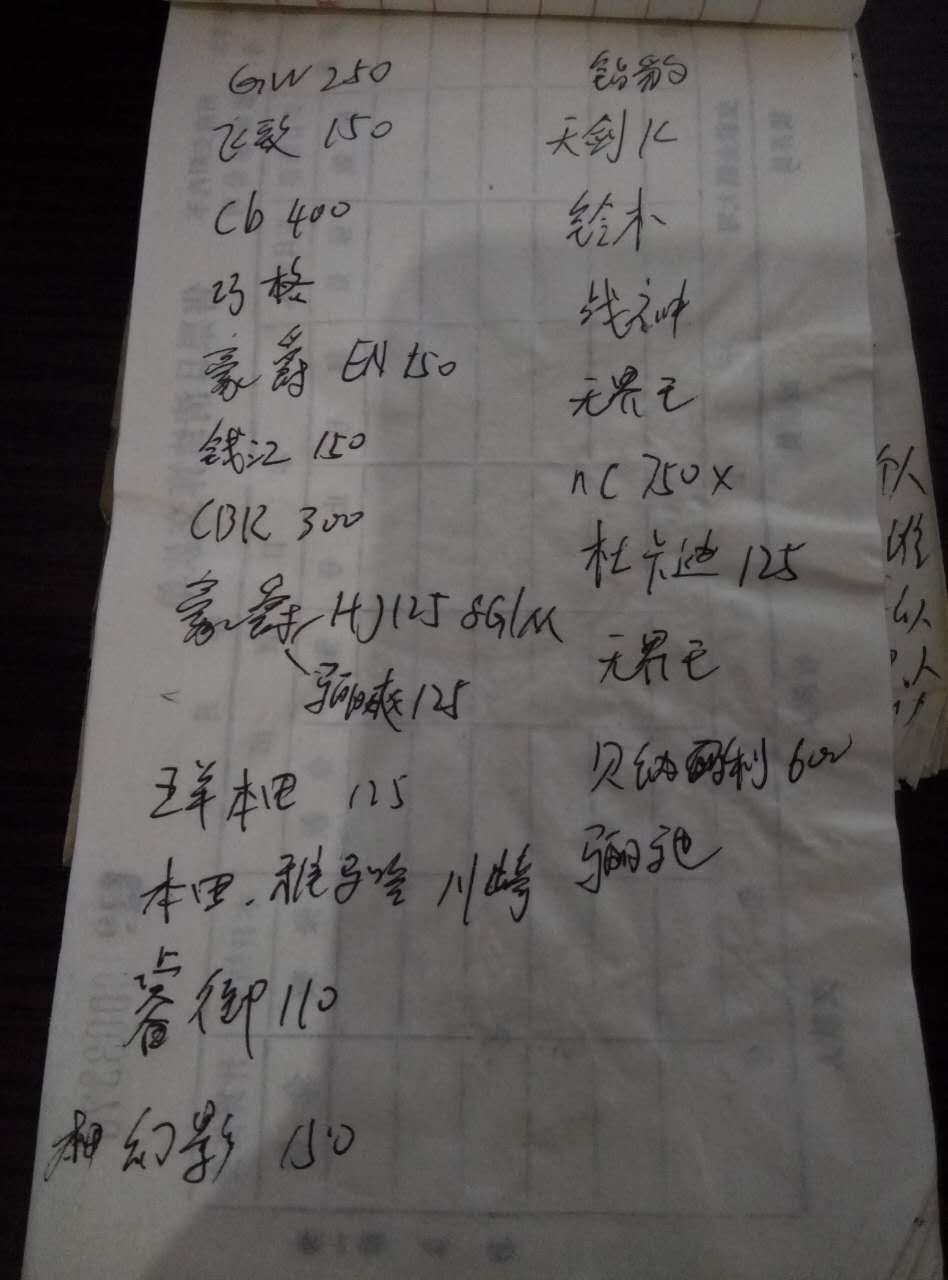 GW 250
飞致 150
Cb 400
巧格
豪爵 EN 150
钱江 150
CBR 300
豪爵 HJ125 8G/M
骊爽 125
王羊本田 125
本田. 雅马哈 川崎
睿御 110
幻影 150
钻豹
天剑 K
铃木
战神
无界王
nC 750X
杜卡迪 125
无界王
贝纳利 600
骊驰
个人
人